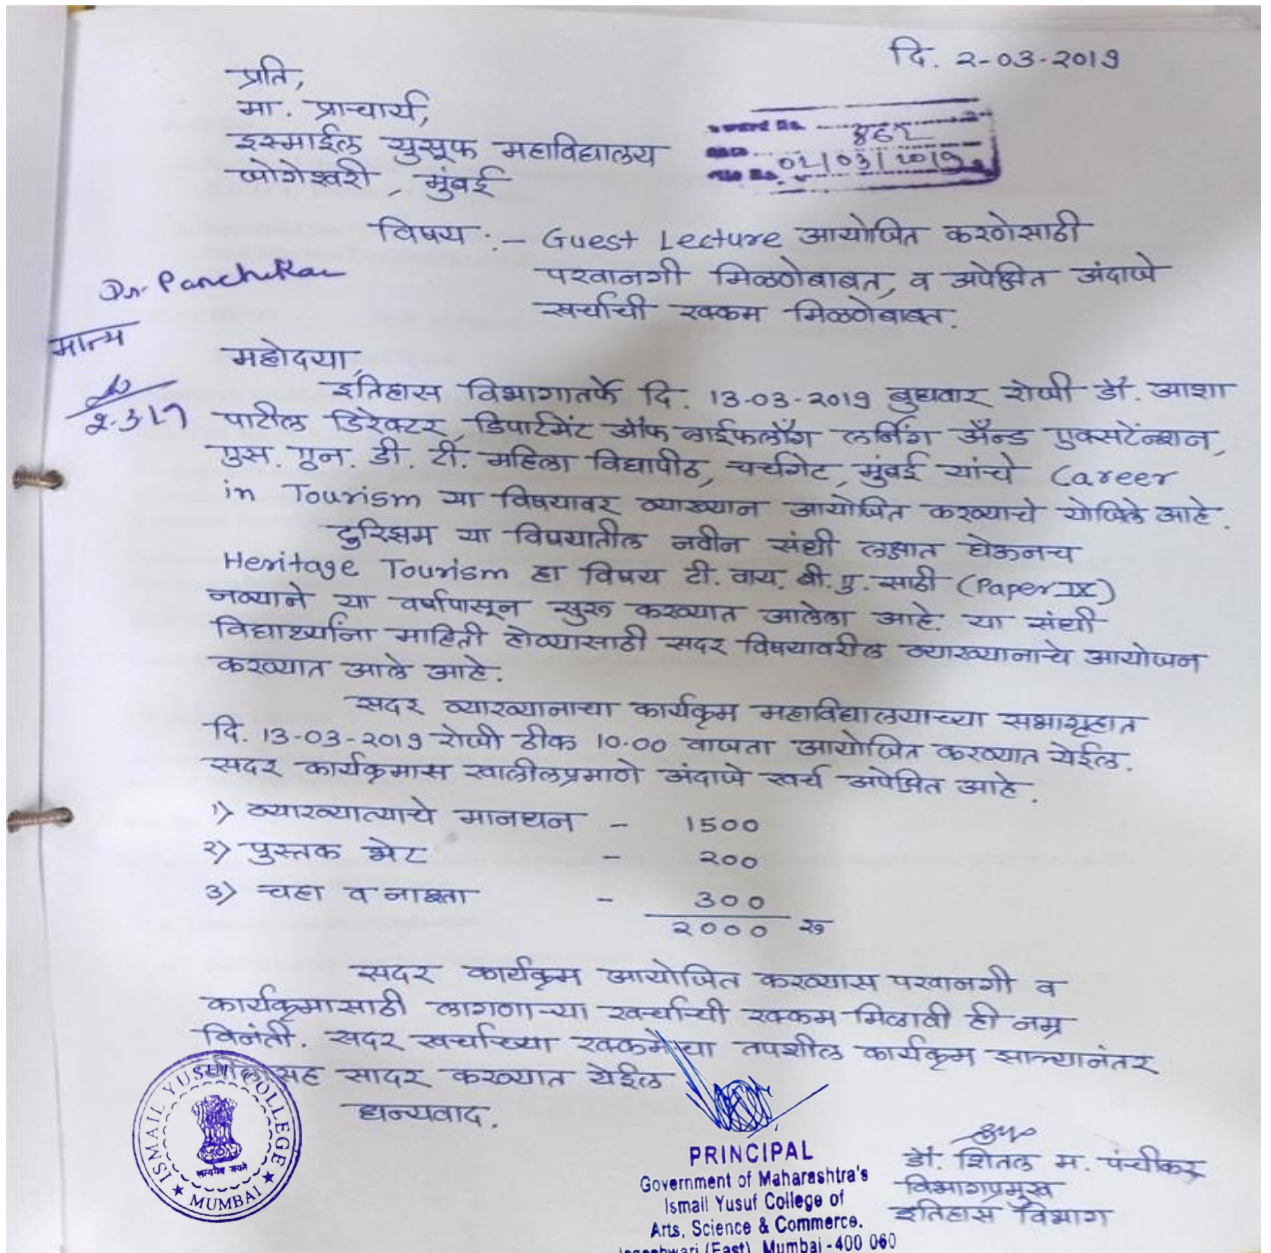 दि. २-०३-२०19
प्रति,
मा. प्राचार्य,
इस्माईल युसूफ महाविद्यालय
जोगेश्वरी, मुंबई
०२/०३/२०१९
विषय :- Guest Lecture आयोजित करणेसाठी
परवानगी मिळणेबाबत, व अपेक्षित अंदाजे
खर्चाची रक्कम मिळणेबाबत.
Dr. Panchikar
मान्य
2.3.19
महोदया,
इतिहास विभागातर्फे दि. 13-03-2019 बुधवार रोजी डॉ. आशा
पाटील डिरेक्टर, डिपार्टमेंट ऑफ लाईफलाँग लर्निंग अँन्ड एक्सटेंन्शन,
एस. एन. डी. टी. महिला विद्यापीठ, चर्चगेट, मुंबई यांचे Career
in Tourism या विषयावर व्याख्यान आयोजित करण्याचे योजिले आहे.
टुरिझम या विषयातील नवीन संधी लक्षात घेऊनच
Heritage Tourism हा विषय टी. वाय. बी. ए. साठी (Paper IX)
नव्याने या वर्षापासून सुरु करण्यात आलेला आहे. या संधी
विद्यार्थ्यांना माहिती होण्यासाठी सदर विषयावरील व्याख्यानाचे आयोजन
करण्यात आले आहे.
सदर व्याख्यानाचा कार्यक्रम महाविद्यालयाच्या सभागृहात
दि. 13-03-2019 रोजी ठीक 10.00 वाजता आयोजित करण्यात येईल.
सदर कार्यक्रमास खालीलप्रमाणे अंदाजे खर्च अपेक्षित आहे.
१) व्याख्यात्याचे मानधन - 1500
२) पुस्तक भेट - २००
३) चहा व नाश्ता - 300
२००० रु
सदर कार्यक्रम आयोजित करण्यास परवानगी व
कार्यक्रमासाठी लागणाऱ्या खर्चाची रक्कम मिळावी ही नम्र
विनंती. सदर खर्चाच्या रक्कमेचा तपशील कार्यक्रम झाल्यानंतर
सह सादर करण्यात येईल
धन्यवाद.
ISMAIL YUSUF COLLEGE
सत्यमेव जयते
★ MUMBAI ★
PRINCIPAL
Government of Maharashtra's
Ismail Yusuf College of
Arts, Science & Commerce.
(East), Mumbai - 400 060
डॉ. शितल म. पंचीकर
विभागप्रमुख
इतिहास विभाग